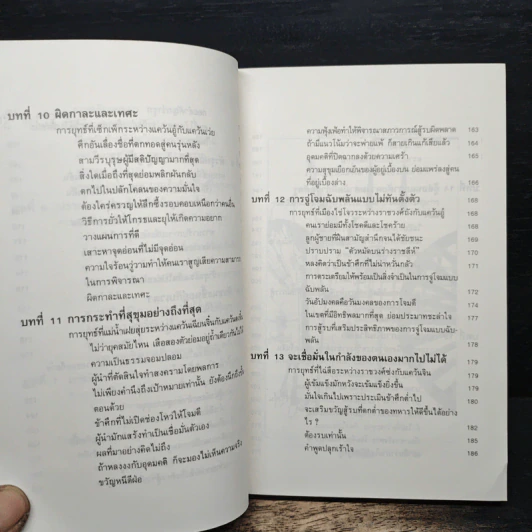 บทที่ 10 ผิดกาละและเทศะ
การยุทธ์ที่เซ็กเพ็กระหว่างแคว้นอู๋กับแคว้นเว่ย
ศึกอันเลื่องชื่อที่ตกทอดสู่คนรุ่นหลัง
สามวีรบุรุษผู้มีสติปัญญามากที่สุด
สิ่งใดเมื่อถึงที่สุดย่อมพลิกผันกลับ
ตกไปในปลักโคลนของความมั่นใจ
ต้องใคร่ครวญให้ลึกซึ้งรอบคอบเหนือกว่าคนอื่น
วิธีการยั่วให้โกรธและยุให้เกิดความอยาก
วางแผนการที่ดี
เสาะหาจุดอ่อนที่ไม่มีจุดอ่อน
ความใจร้อนวู่วามทำให้คนเราสูญเสียความสามารถ
ในการพิจารณา
ผิดกาละและเทศะ
บทที่ 11 การกระทำที่สุขุมอย่างถึงที่สุด
การยุทธ์ที่แม่น้ำเฝยสุ่ยระหว่างแคว้นเฉียนฉิ๋นกับแคว้น
ไม่ว่ายุคสมัยไหน เสือสองตัวย่อมอยู่ถ้ำเดียวกันไม่ได้
ความเป็นธรรมจอมปลอม
ผู้นำที่ตัดสินใจทำสงครามโดยพลการ
ไม่เพียงคำนึงถึงเป้าหมายเท่านั้น ยังต้องนึกถึง
ตอนด้วย
ข้าศึกที่ไม่เปิดช่องโหว่ให้โจมตี
ผู้นำมักแสร้งทำเป็นเชื่อมั่นตัวเอง
ผลที่มาอย่างคิดไม่ถึง
ถ้าหลงงงกับอุดมคติ ก็จะมองไม่เห็นความจริง
ขวัญหนีดีฝ่อ
ความฟุ้งเฟ้อทำให้พิจารณาสภาวการณ์สู้รบผิดพลาด 163
ถ้ามีแนวโน้มว่าจะพ่ายแพ้ ก็สายเกินแก้เสียแล้ว 164
อุดมคติที่ปิดฉากลงด้วยความเศร้า 165
ความสุขุมเยือกเย็นของผู้อยู่เบื้องบน ย่อมแพร่ลงสู่คน
ที่อยู่เบื้องล่าง 167
บทที่ 12 การจู่โจมฉับพลันแบบไม่ทันตั้งตัว
การยุทธ์ที่เมืองไช่โจวระหว่างราชวงศ์ถังกับแคว้นอู๋
คนเราย่อมมีทั้งโชคดีและโชคร้าย
ลูกผู้ชายที่ฝืนสามัญสำนึกจนได้ชัยชนะ
ปราบปราม "ตัวหมัดบนร่างราชสีห์"
หลงคิดว่าเป็นข้าศึกที่ไม่น่าหวั่นกลัว
การตระเตรียมให้พร้อมเป็นสิ่งจำเป็นในการจู่โจมแบบ
ฉับพลัน
วันอัปมงคลคือวันมงคลของการโจมตี
ในเขตที่มีอิทธิพลมากที่สุด ย่อมประมาทชะล่าใจ
การสู้รบที่เสริมประสิทธิภาพของการจู่โจมแบบฉับ-
พลัน
บทที่ 13 จะเชื่อมั่นในกำลังของตนเองมากไปไม่ได้ 179
การยุทธ์ที่ไฉ่สือระหว่างราชวงศ์ซ่งกับแคว้นจิน 179
ผู้เข้มแข็งมักหวังจะเข้มแข็งยิ่งขึ้น 180
มั่นใจเกินไปเพราะประเมินข้าศึกต่ำไป 182
จะเสริมขวัญสู้รบที่ตกต่ำของทหารให้ดีขึ้นได้อย่าง
ไร ?
ต้องรบเท่านั้น 185
คำพูดปลุกเร้าใจ 186